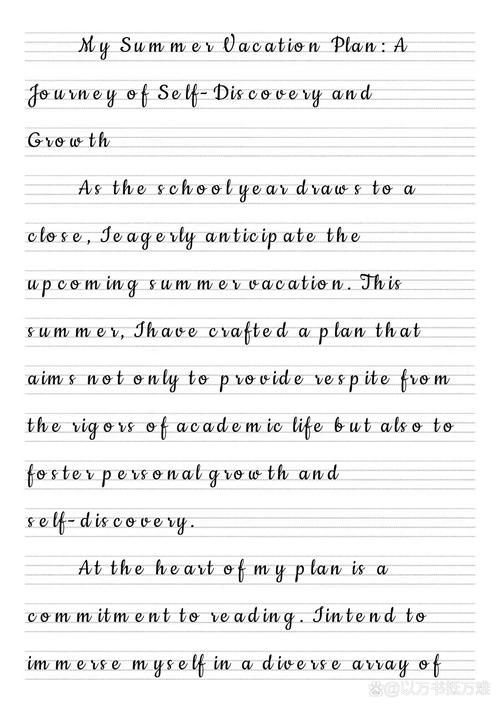 My Summer Vacation Plan: A
Journey of Self-Discovery and
Growth
As the school year draws to a
close, I eagerly anticipate the
upcoming summer vacation. This
summer, I have crafted a plan that
aims not only to provide respite from
the rigors of academic life but also to
foster personal growth and
self-discovery.
At the heart of my plan is a
commitment to reading. I intend to
immerse myself in a diverse array of
@以万书抵万难